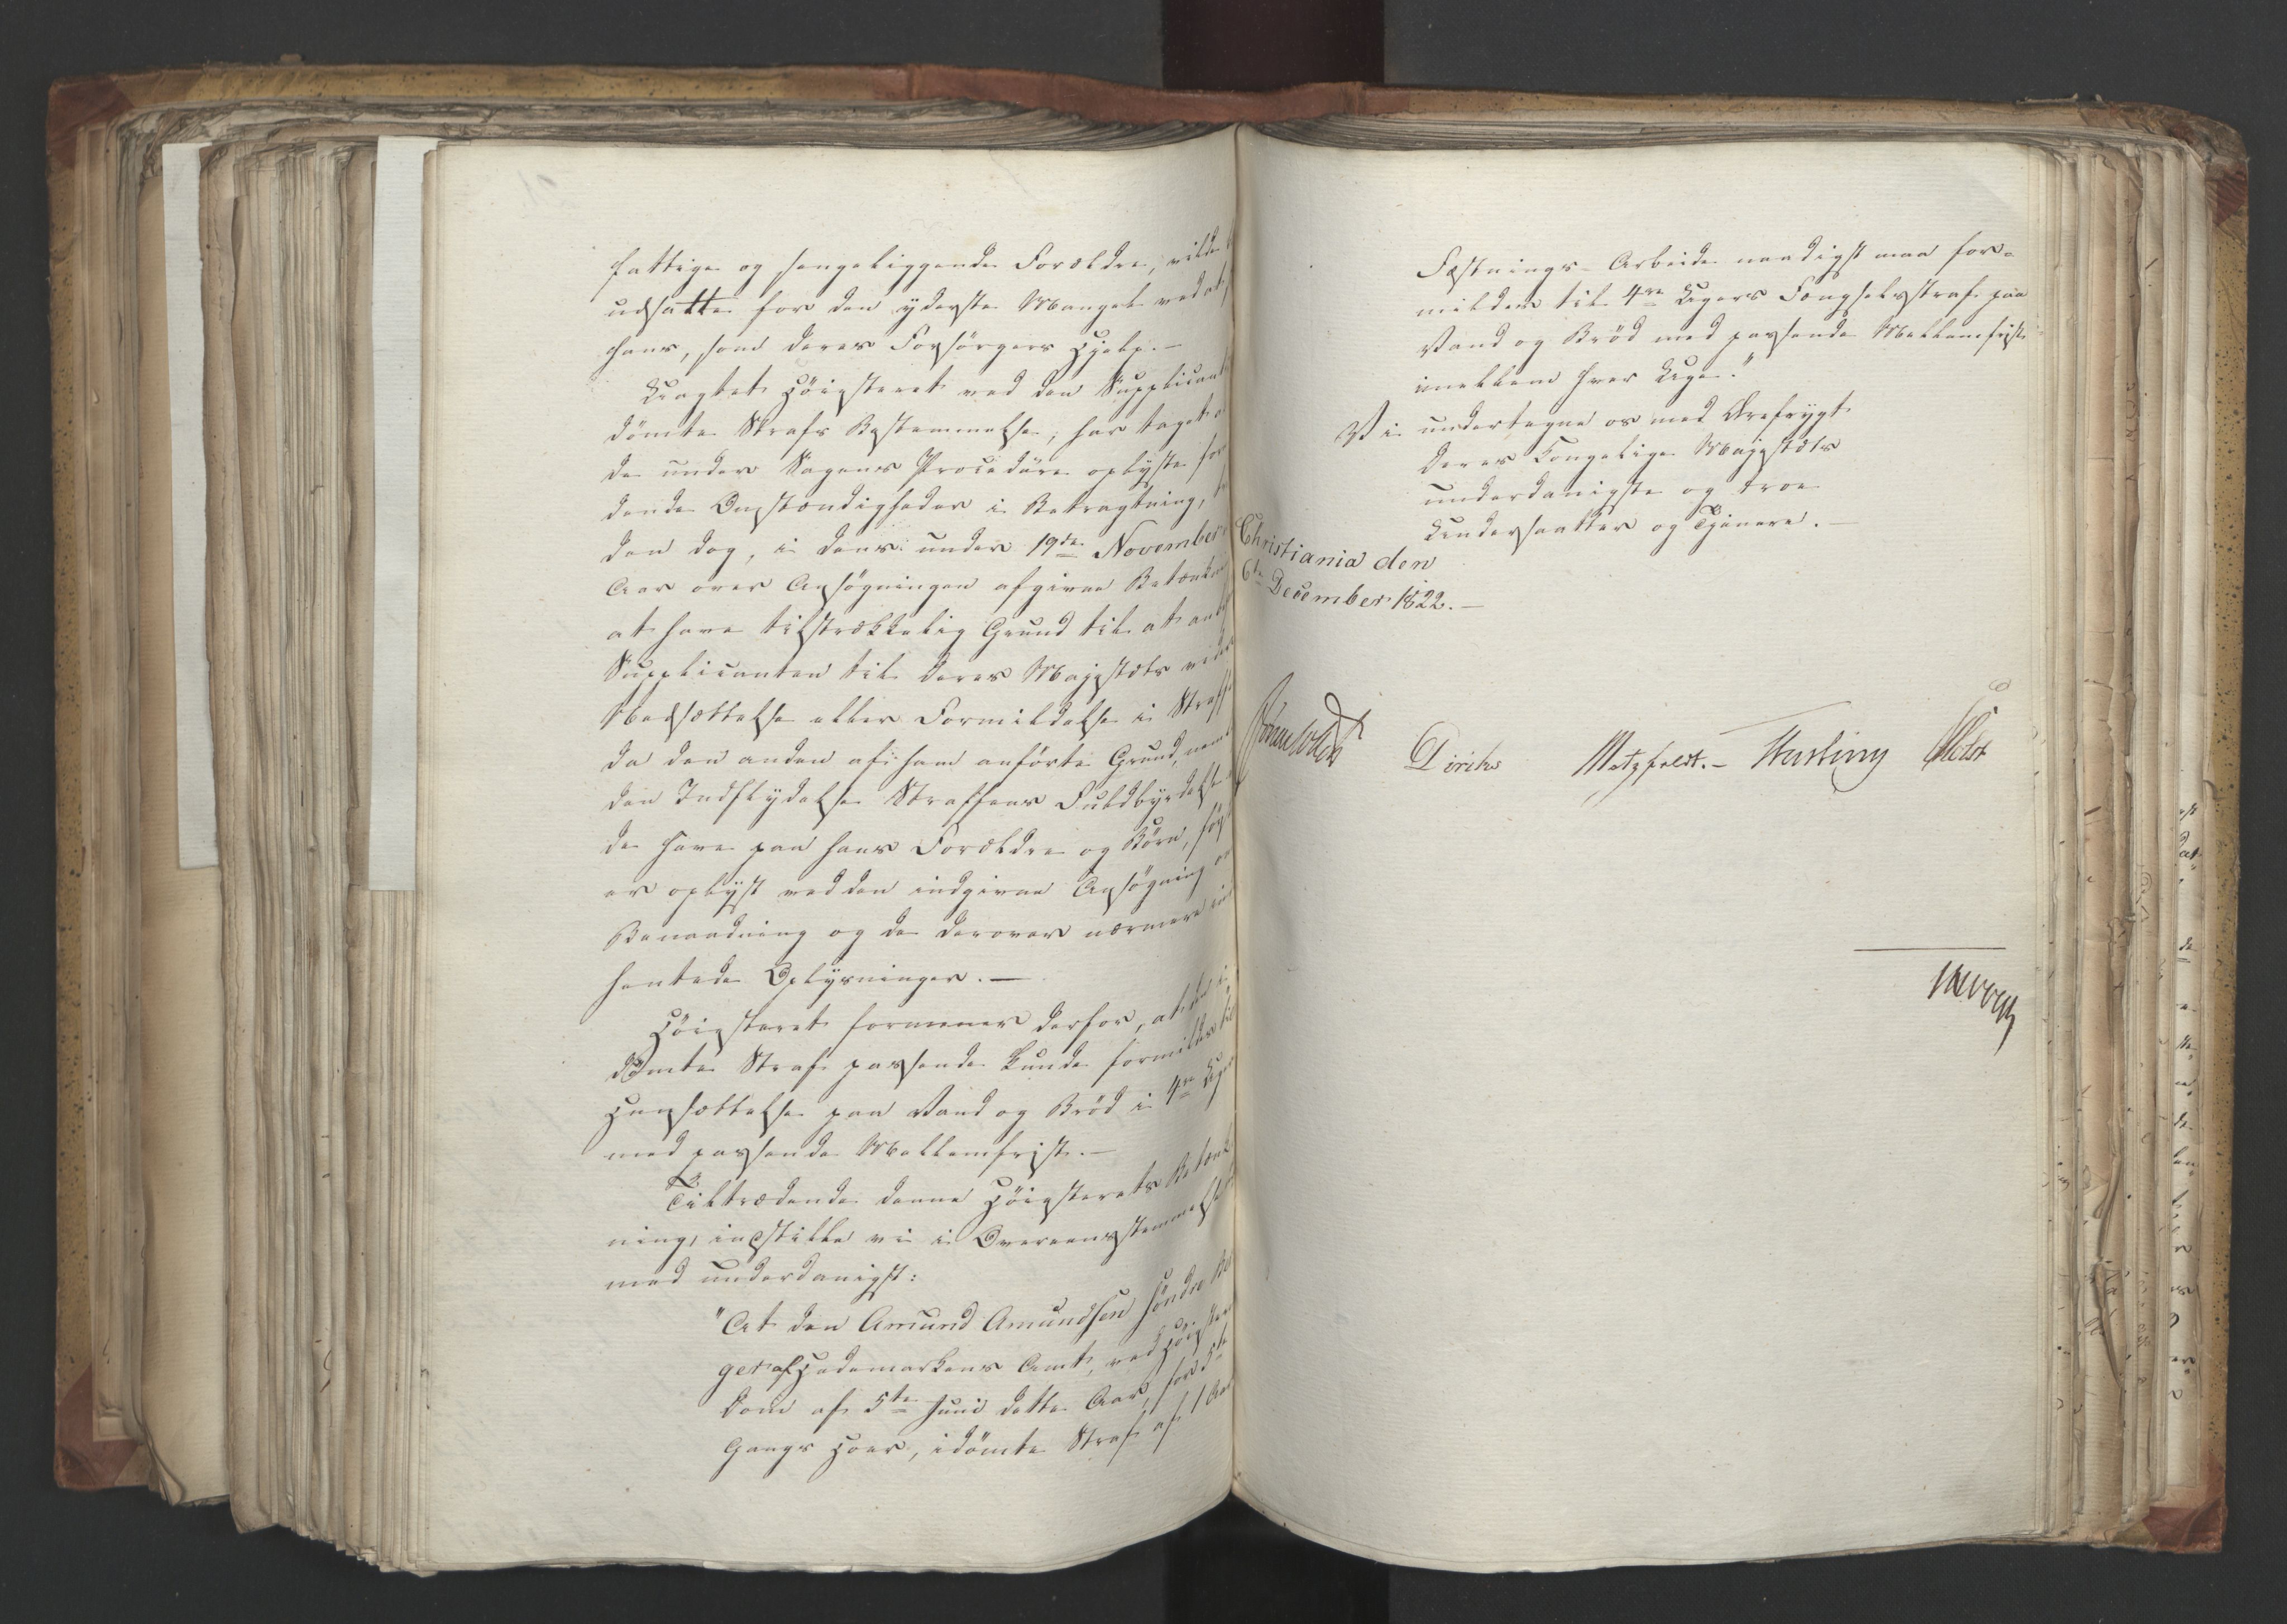 fattige og sengeliggende Forældre, vilde
udsatte for den yderste Mangel ved at
hans, som deres Forsörgers Hjelp.—
Uagtet Höiesteret ved den Supplicant
dömte Strafs Bestemmelse, har taget
de under Sagens Procedüre oplyste for
dende Omstændigheder i Betragtning,
den dog, i dens under 19de November
Aar over Ansögningen afgivne Betænkn
at have tilstrækkelig Grund til at anbe
Supplicanten til Deres Majestæts videre
Nedsættelse eller Formildelse i Straff
da den anden af ham anförte Grund, neml
den Indflydelse Straffens Fuldbyrdelse
de have paa hans Forældre og Börn, först
er oplyst ved den indgivne Ansögning om
Benaadning og de derover nærmere ind
hentede Oplysninger.—
Höiesteret formener derfor, at den i
dömte Straf passende kunde formildes til
Hensættelse paa Vand og Bröd i 4re Uger
med passende Mellemfrist.—
Tiltrædende denne Höiesterets Betænk
ning, indstille vi i Overeensstemmelse
med underdanigst:
"At den Amund Amundsen Söndre
ger af Hedemarkens Amt, ved Höiesterets
Dom af 5te Juni dette Aar, for 3de
Gangs Hoer, idömte Straf af 1 Aars
Fæstnings-Arbeide naadigst maa for-
mildes til 4re Ugers Fængselsstraf paa
Vand og Bröd med passende Mellemfrist
imellem hver Uge."
Vi undertegne os med Ærefrygt
Deres Kongelige Majestæts
underdanigste og troe
Undersaatter og Tjenere.—
Christiania den
6te December 1822.—
Sommerhielm Diriks Motzfeldt.— Fasting Holst